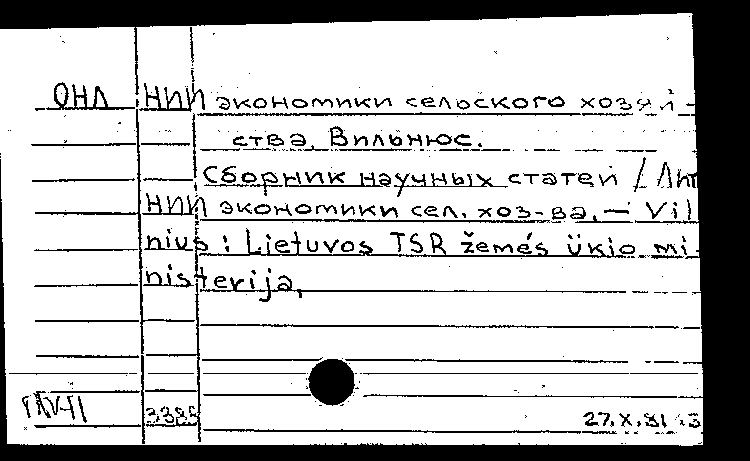 ОНЛ НИИ экономики сельского хозяй-
ства. Вильнюс.
Сборник научных статей / Лит
НИИ экономики сел. хоз-ва. — Vil
nius : Lietuvos TSR žemės ūkio mi-
nisterija,
3385
27.X.81